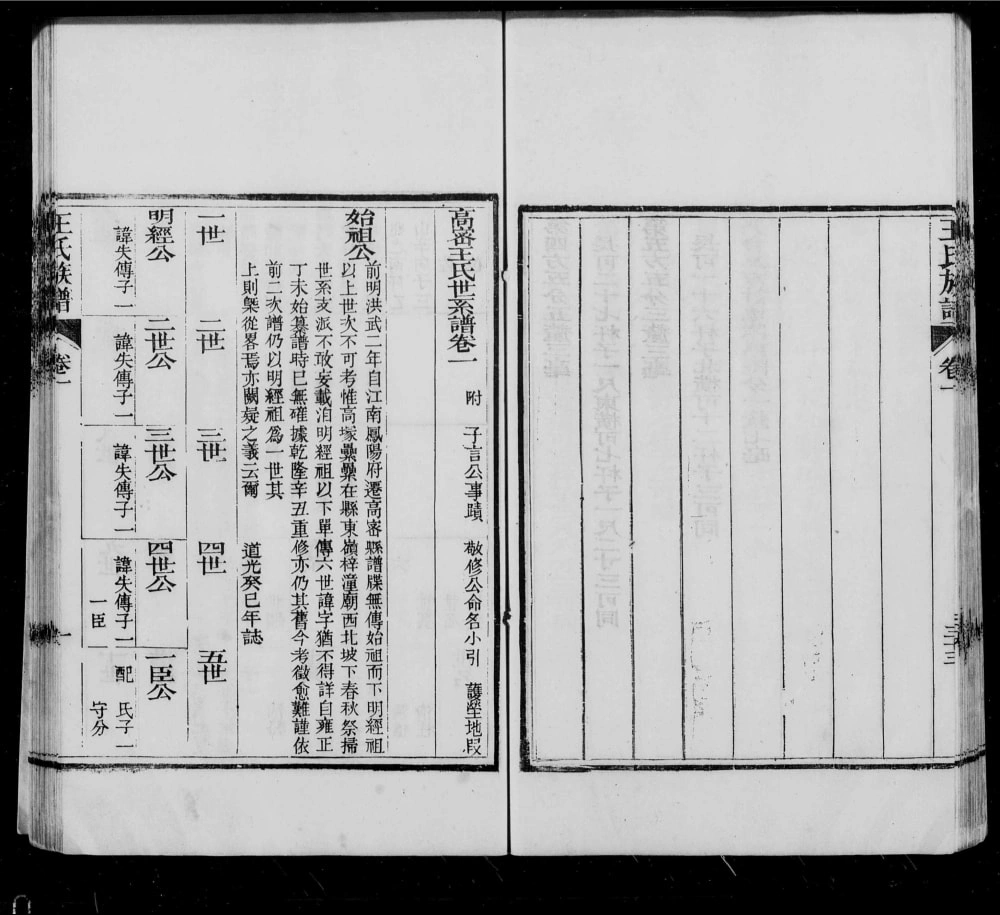 王氏族譜
卷一
三十三
高密王氏世系譜卷一 附 子言公事蹟 敬修公命名小引 護塋地叚
始祖公
前明洪武二年自江南鳳陽府遷高密縣譜牒無傳始祖而下明經祖
以上世次不可考惟高塚纍纍在縣東嶺梓潼廟西北坡下春秋祭掃
世系支派不敢妄載洎明經祖以下單傳六世諱字猶不得詳自雍正
丁未始纂譜時已無確據乾隆辛丑重修亦仍其舊今考徵愈難謹依
前二次譜仍以明經祖爲一世其
上則槩從畧焉亦闕疑之義云爾 道光癸巳年誌
一世 二世 三世 四世 五世
明經公 二世公 三世公 四世公 一臣公
諱失傳子一 諱失傳子一 諱失傳子一 諱失傳子一 配 氏子一
一臣 守分
王氏族譜
卷一
一